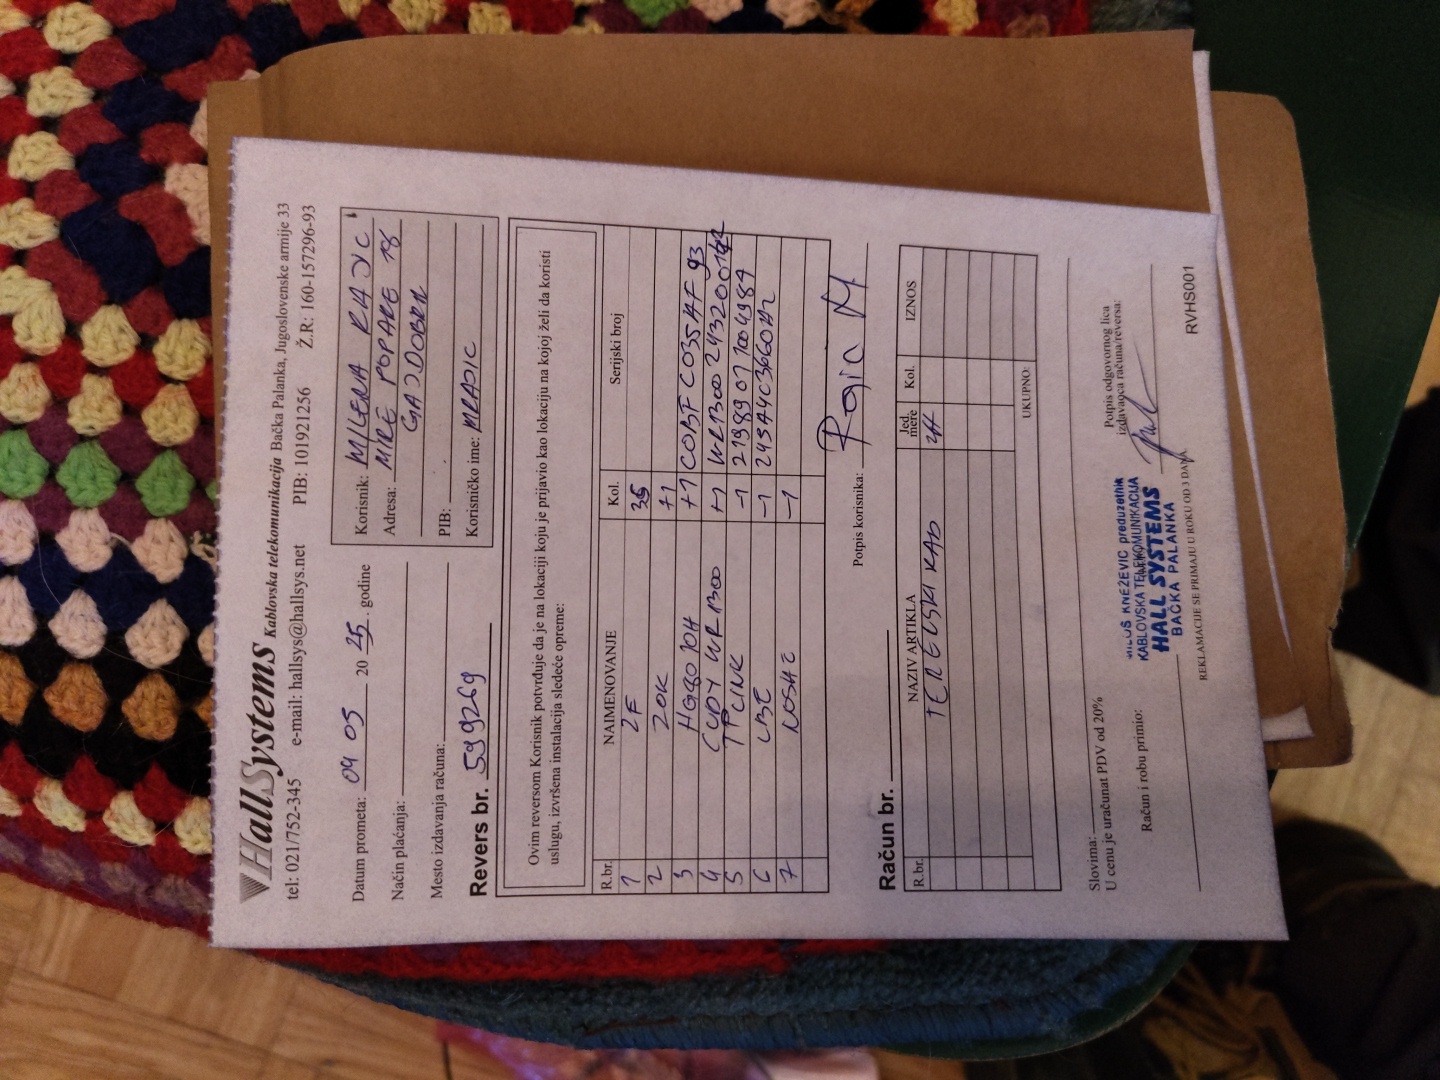 HallSystems Kablovska telekomunikacija Bačka Palanka, Jugoslovenske armije 33
tel: 021/752-345 e-mail: hallsys@hallsys.net PIB: 101921256 Ž.R: 160-157296-93
Datum prometa: 04 05 2025. godine
Način plaćanja:
Mesto izdavanja računa:
Korisnik: MILENA
Adresa: MIRE POPARE 18
GAJDOBRA
PIB:
Korisničko ime:
Revers br. 599269
Ovim reversom Korisnik potvrđuje da je na lokaciji koju je prijavio kao lokaciju na kojoj želi da koristi
uslugu, izvršena instalacija sledeće opreme:
R.br. NAIMENOVANJE Kol. Serijski broj
1 2F 35
2 ZOK +1
3 +1 C03FC035AF93
4 CUDY WR1300 +1
5 TPLINK -1
6 -1
7 -1
Potpis korisnika:
Račun br.
R.br. NAZIV ARTIKLA Jed. mere Kol. IZNOS
TERETSKI RAD
UKUPNO:
Slovima:
U cenu je uračunat PDV od 20%
Račun i robu primio:
Potpis odgovornog lica
izdavaoca računa/reversa:
MILOŠ KNEŽEVIĆ preduzetnik
KABLOVSKA TELEKOMUNIKACIJA
HALL SYSTEMS
BAČKA PALANKA
REKLAMACIJE SE PRIMAJU U ROKU OD 3 DANA
RVHS001